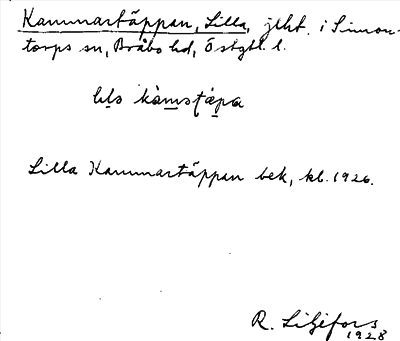 Kammartäppan, Lilla, jlht. i Simon-
torps sn, Bråbo hd, Östgtl. l.
Lilla Kammartäppan bek, kb. 1926.
R. Liljefors
1928